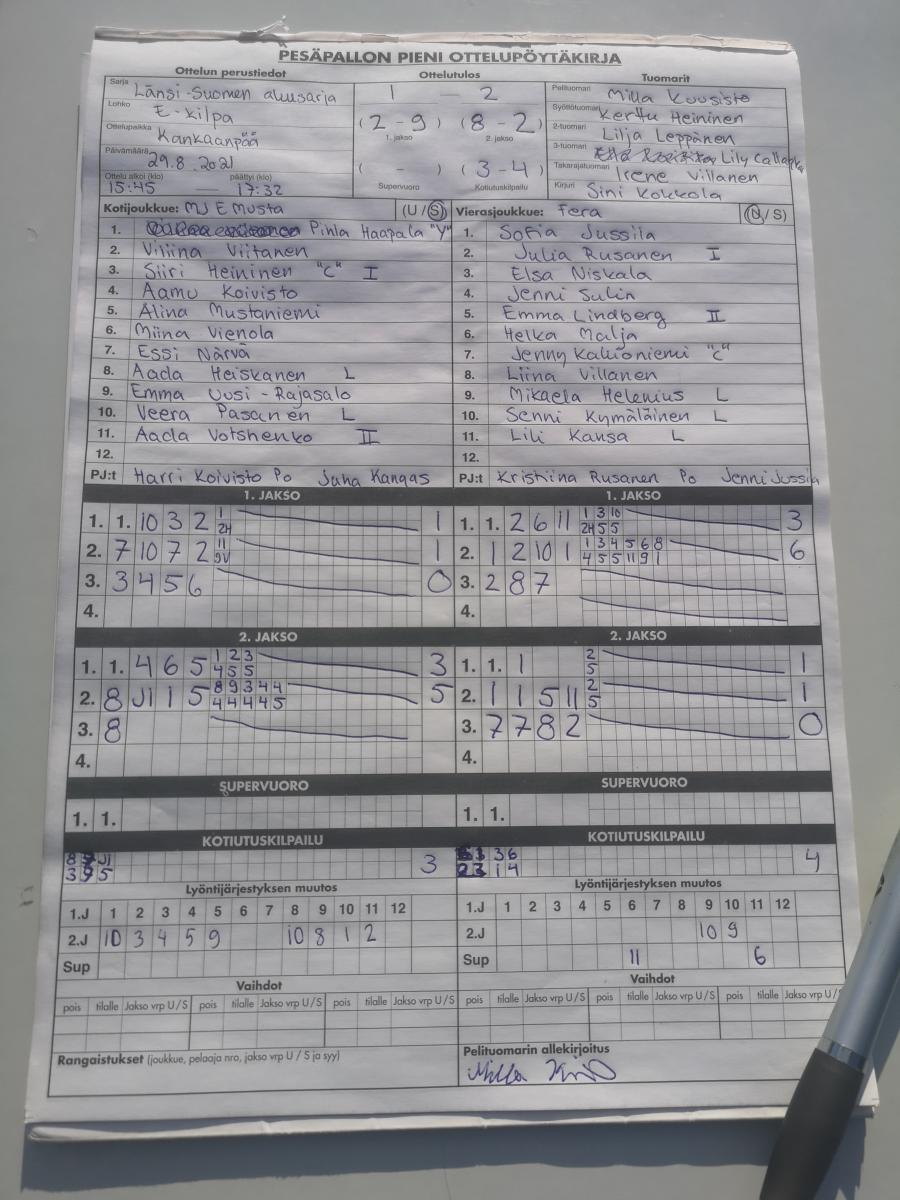 PESÄPALLON PIENI OTTELUPÖYTÄKIRJA
Ottelun perustiedot Ottelutulos Tuomarit
Sarja Länsi-Suomen aluesarja 1 — 2 Pelituomari Milla Kuusisto
Lohko E-kilpa (2-9) (8-2) Syöttötuomari Kerttu Heininen
1. jakso 2. jakso
Ottelupaikka Kankaanpää 2-tuomari Lilja Leppänen
Päivämäärä 29.8.2021 ( - ) (3-4) 3-tuomari Lily
Takarajatuomari Irene Villanen
Ottelu alkoi (klo) päättyi (klo) Supervuoro Kotiutuskilpailu
15:45 — 17:32 Kirjuri Sini Kokkola
Kotijoukkue: MJ E Musta (U/S) Vierasjoukkue: Fera (U/S)
1. Pihla Haapala "Y" 1. Sofia Jussila
2. Viliina Viitanen 2. Julia Rusanen I
3. Siiri Heininen "C" I 3. Elsa Niskala
4. Aamu Koivisto 4. Jenni Sulin
5. Alina Mustaniemi 5. Emma Lindberg II
6. Miina Vienola 6. Helka Malja
7. Essi Närvä 7. Jenny Kallioniemi "C"
8. Aada Heiskanen L 8. Liina Villanen
9. Emma Uusi-Rajasalo 9. Mikaela Helenius L
10. Veera Pasanen L 10. Senni Kymäläinen L
11. Aada Votshenko II 11. Lili Kansa L
12. 12.
PJ:t Harri Koivisto Po Juha Kangas PJ:t Kristiina Rusanen Po Jenni Jussila
1. JAKSO 1. JAKSO
1. 1. 10 3 2 1 1 1. 1. 2 6 11 1 3 10 3
2H 2H 5 5
2. 7 10 7 2 11 1 2. 1 2 10 1 1 3 4 5 6 8 6
9V 4 5 5 11 9 1
3. 3 4 5 6 0 3. 2 8 7
4. 4.
2. JAKSO 2. JAKSO
1. 1. 4 6 5 1 2 3 3 1. 1. 1 2 1
4 5 5 5
2. 8 J1 1 5 8 9 3 4 4 5 2. 1 1 5 11 2 1
4 4 4 4 5 5
3. 8 3. 7 7 8 2 0
4. 4.
SUPERVUORO SUPERVUORO
1. 1. 1. 1.
KOTIUTUSKILPAILU KOTIUTUSKILPAILU
J1 3 3 6 4
5 1 4
Lyöntijärjestyksen muutos Lyöntijärjestyksen muutos
1.J 1 2 3 4 5 6 7 8 9 10 11 12 1.J 1 2 3 4 5 6 7 8 9 10 11 12
2.J 10 3 4 5 9 10 8 1 2 2.J 10 9
Sup Sup 11 6
Vaihdot Vaihdot
pois tilalle Jakso vrp U/S pois tilalle Jakso vrp U/S pois tilalle Jakso vrp U/S pois tilalle Jakso vrp U/S pois tilalle Jakso vrp U/S pois tilalle Jakso vrp U/S
Rangaistukset (joukkue, pelaaja nro, jakso vrp U / S ja syy) Pelituomarin allekirjoitus
Milla